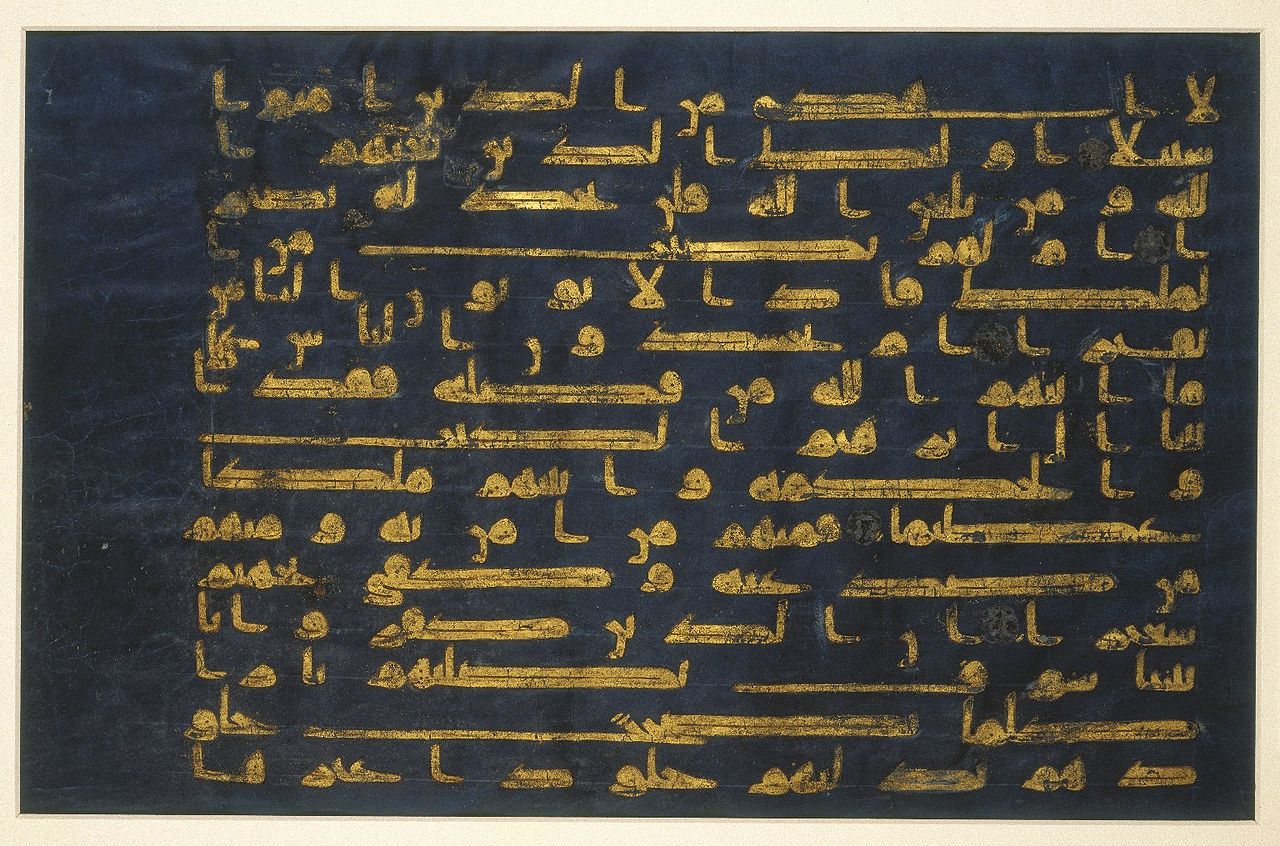 لا اهدى من الذين امنوا
سبيلا اولئك الذين لعنهم ا
لله ومن يلعن الله فلن تجد له نصير
ا ام لهم نصيب من ا
لملك فاذا لا يوتون الناس
نقيرا ام يحسدون الناس على
ما اتيهم الله من فضله فقد ا
تينا ال ابرهيم الكتب
والحكمة واتينهم ملكا
عظيما فمنهم من امن به ومنهم
من صد عنه وكفى بجهنم
سعيرا ان الذين كفروا با
يتنا سوف نصليهم نارا
كلما نضجت جلو
دهم بدلنهم جلودا غيرها